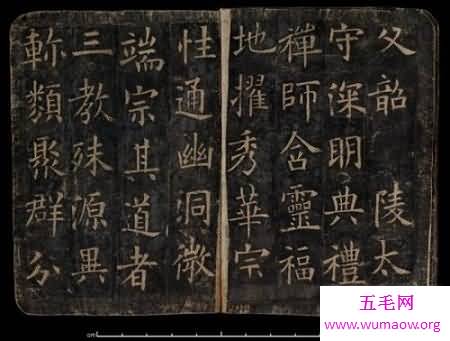 父韶 陵太
守深明典禮
禪師含靈福
地擢秀華宗
性通幽洞微
端宗其道者
三教殊源異
軫類聚群分
五毛网
www.wumaow.org